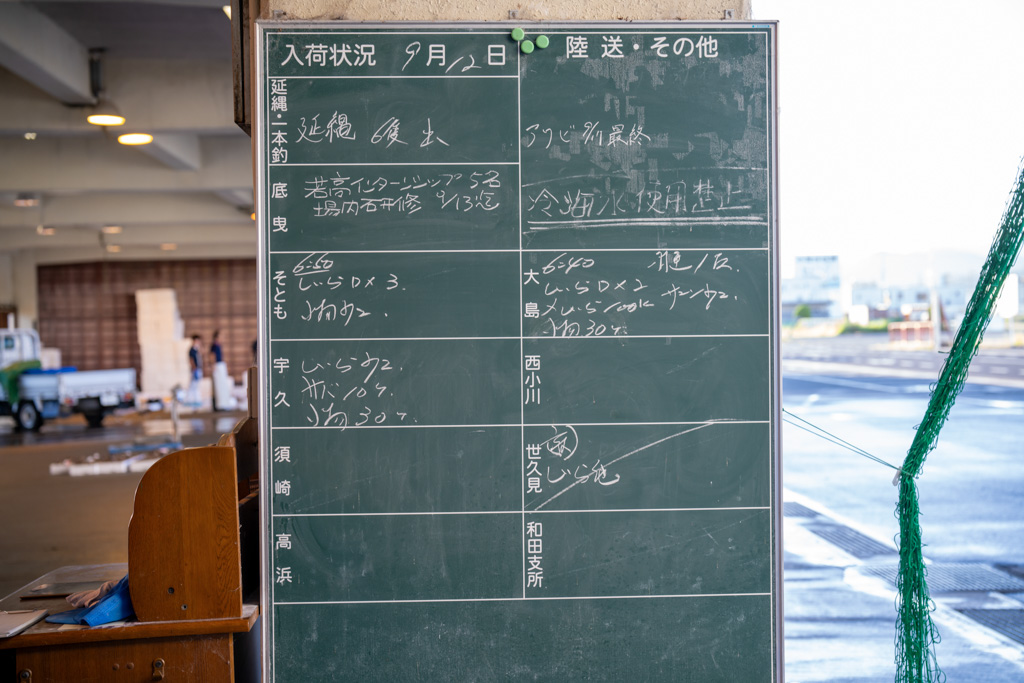 入荷状況 9月12日
陸送・その他
延縄・一本釣
延縄 出
アワビ 9/11最終
底曳
若高インターンシップ 5名
場内研修 9/13迄
冷海水使用禁止
そとも
6:50
しいら D×3.
小物
大島
6:40
しいら D×2
しいら 100K
小物 30ケ.
宇久
しいら
10ケ.
小物 30ケ.
西小川
須崎
世久見
しいら他
高浜
和田支所